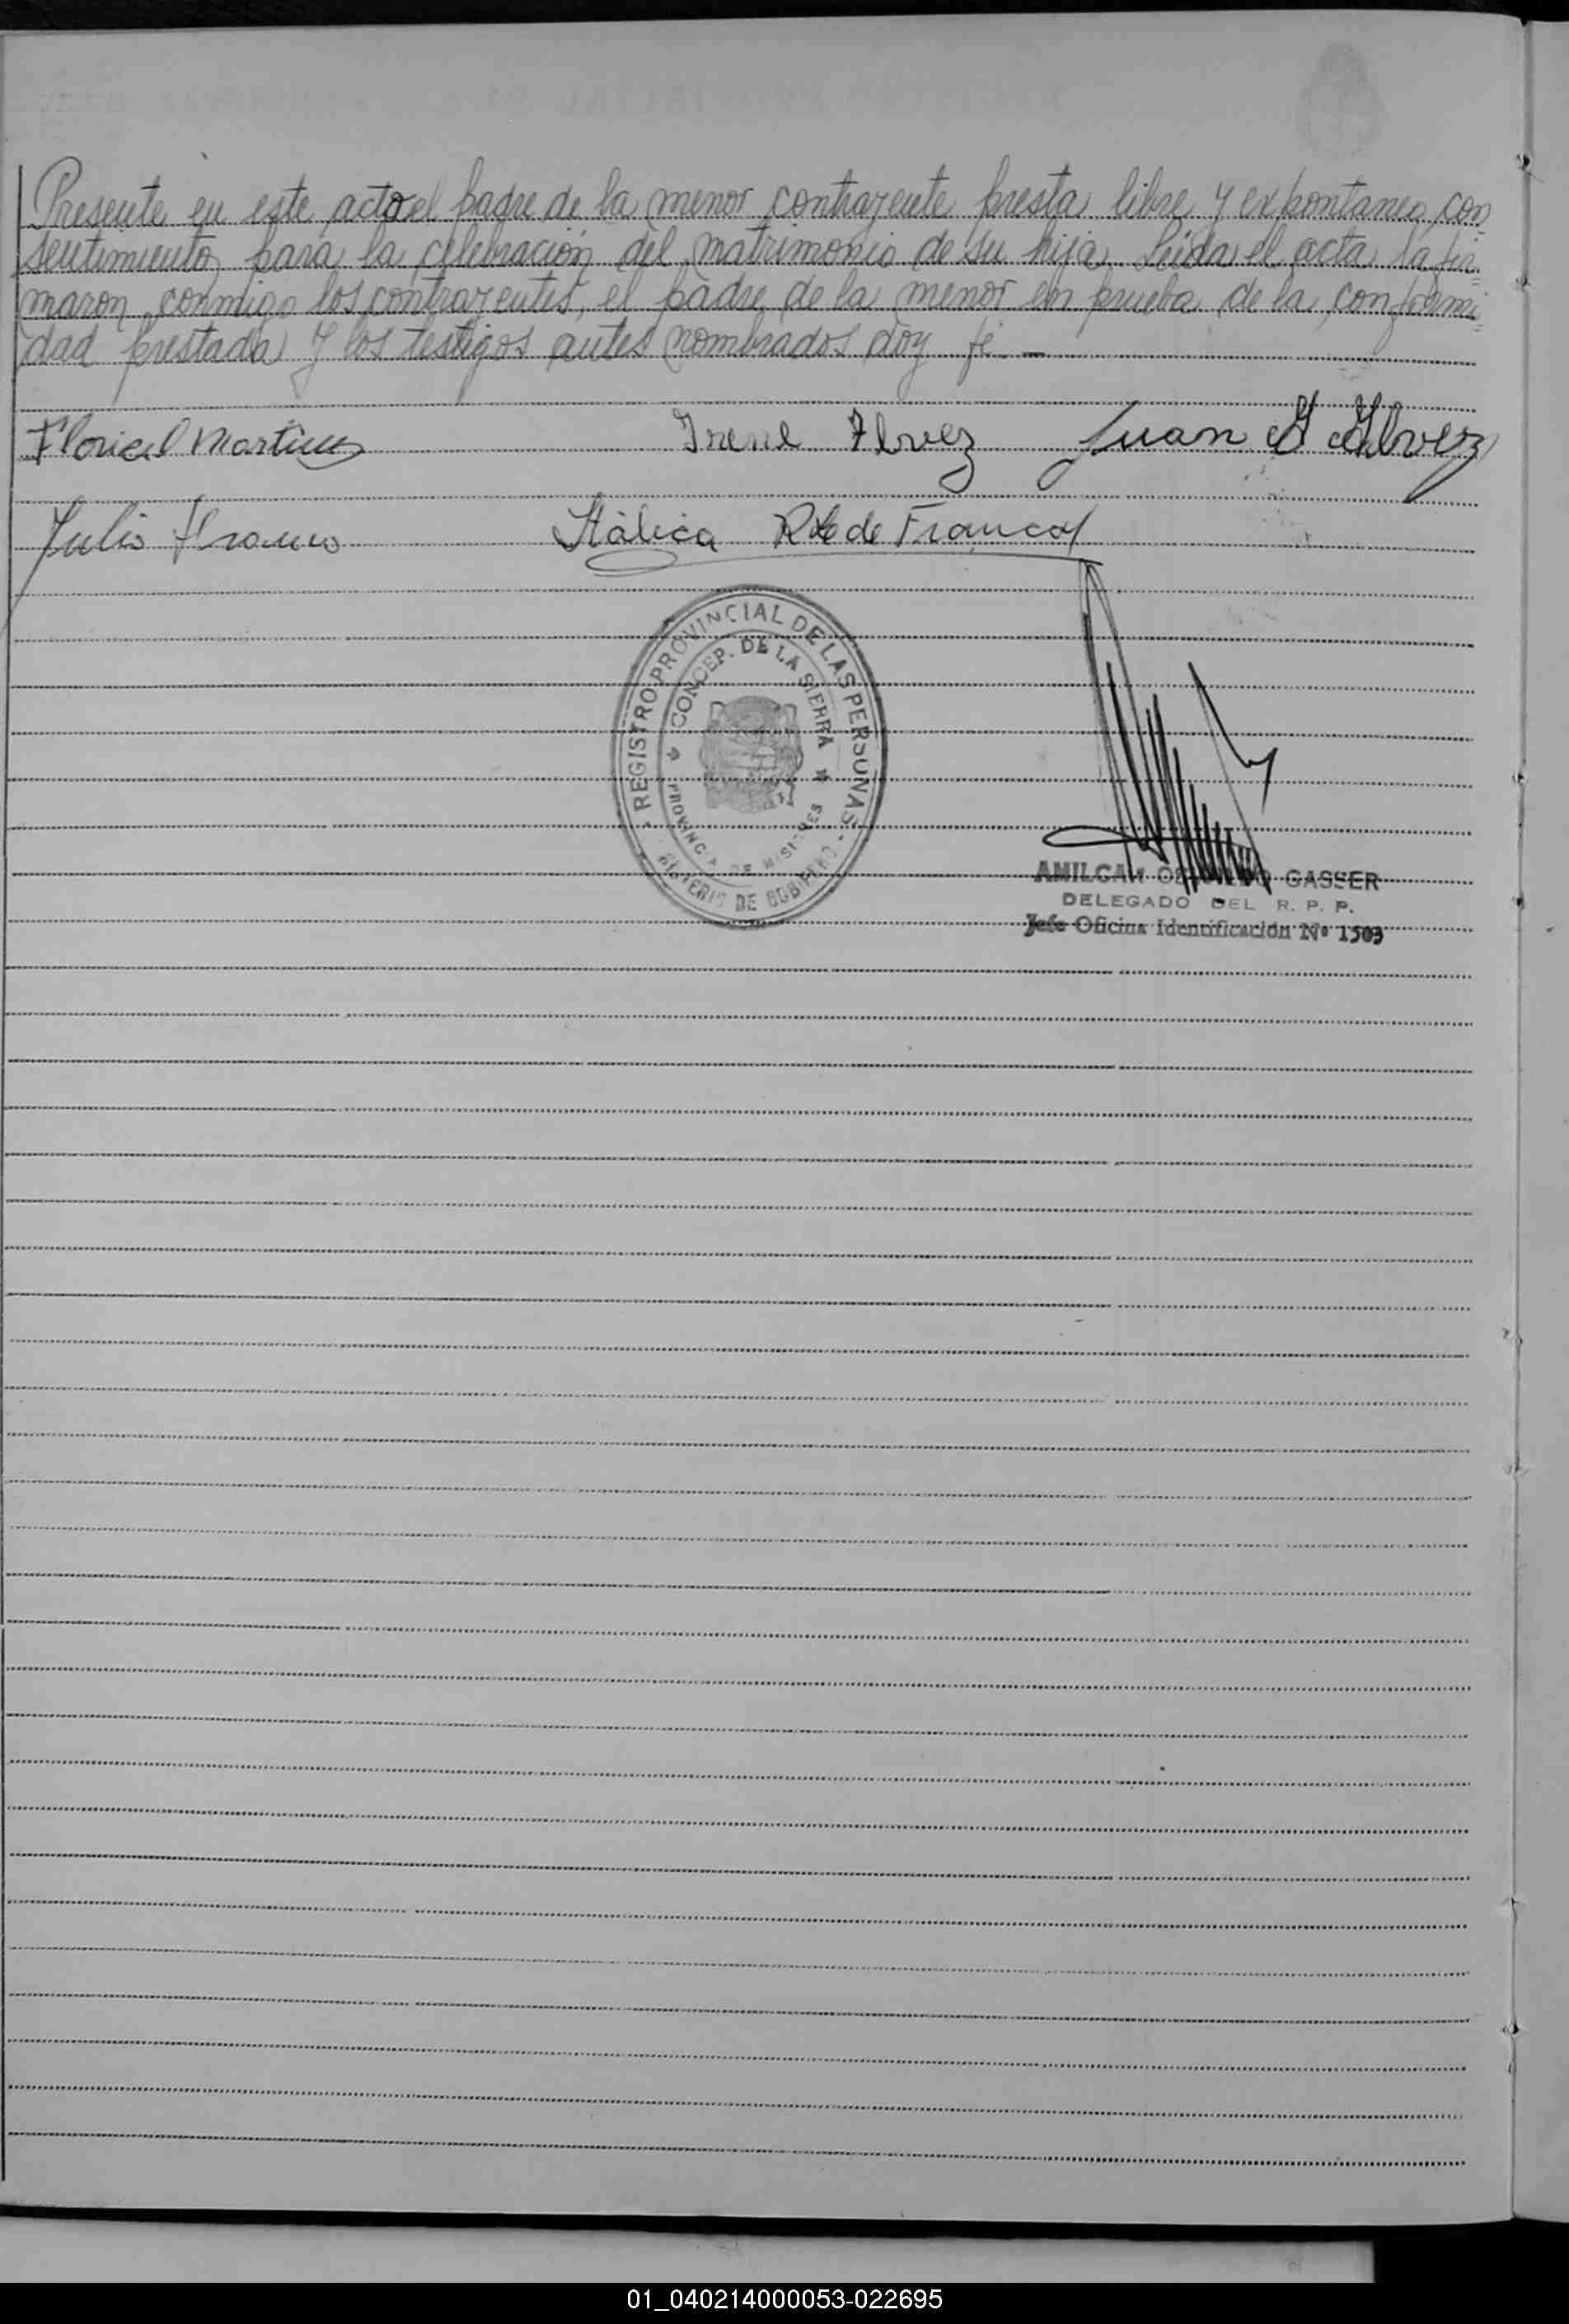 Presente en este acto el padre de la menor contrayente presta libre y expontaneo con=
sentimiento para la celebración del matrimonio de su hija. Leida el acta la fir=
maron conmigo los contrayentes, el padre de la menor en prueba de la conformi=
dad prestada y los testigos antes nombrados doy fé. —
Irene Alvez Juan A Alvez
Julio Franco Itálica R de Franco
REGISTRO PROVINCIAL DE LAS PERSONAS
CONCEP. DE LA SIERRA
PROVINCIA DE MISIONES
MINISTERIO DE GOBIERNO
AMILCAR GASSER
DELEGADO DEL R. P. P.
Jefe Oficina Identificación Nº 1503
01_040214000053-022695